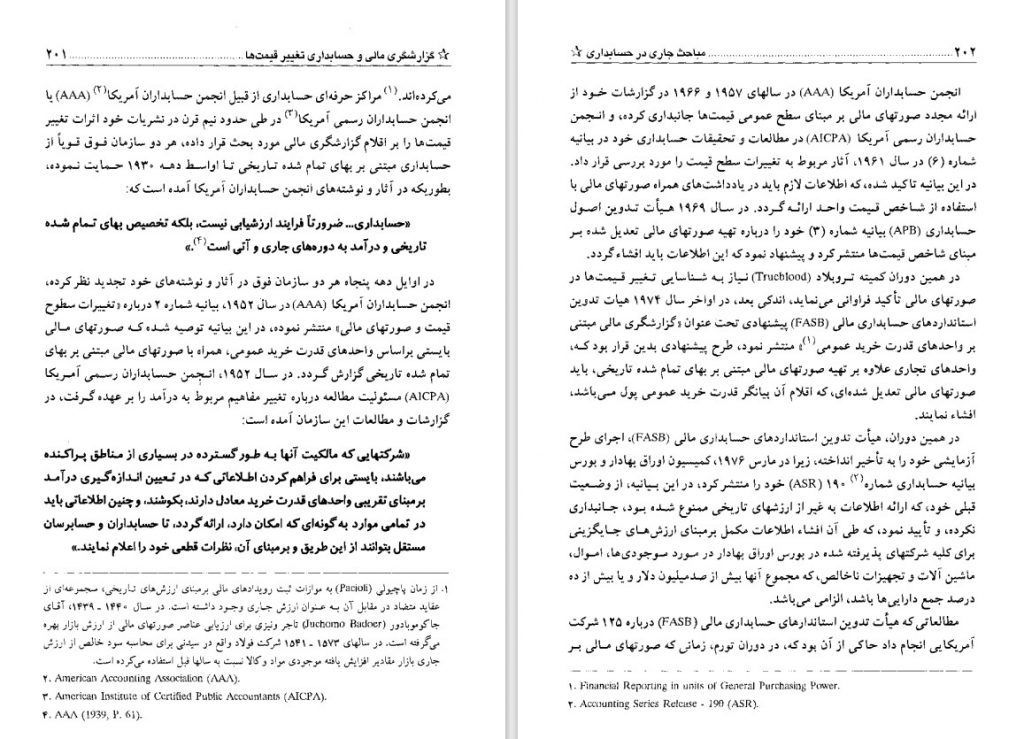 ☆ گزارشگری مالی و حسابداری تغییر قیمت‌ها ........................................ ۲۰۱
می‌کرده‌اند.(۱) مراکز حرفه‌ای حسابداری از قبیل انجمن حسابداران آمریکا(۲) (AAA) یا
انجمن حسابداران رسمی آمریکا(۳) در طی حدود نیم قرن در نشریات خود اثرات تغییر
قیمت‌ها را بر اقلام گزارشگری مالی مورد بحث قرار داده، هر دو سازمان فوق قویاً از
حسابداری مبتنی بر بهای تمام شده تاریخی تا اواسط دهه ۱۹۳۰ حمایت نموده،
بطوریکه در آثار و نوشته‌های انجمن حسابداران آمریکا آمده است که:
«حسابداری... ضرورتاً فرایند ارزشیابی نیست، بلکه تخصیص بهای تمام شده
تاریخی و درآمد به دوره‌های جاری و آتی است(۴).»
در اوایل دهه پنجاه هر دو سازمان فوق در آثار و نوشته‌های خود تجدید نظر کرده،
انجمن حسابداران آمریکا (AAA) در سال ۱۹۵۲، بیانیه شماره ۲ درباره «تغییرات سطوح
قیمت و صورتهای مالی» منتشر نموده، در این بیانیه توصیه شده که صورتهای مالی
بایستی براساس واحدهای قدرت خرید عمومی، همراه با صورتهای مالی مبتنی بر بهای
تمام شده تاریخی گزارش گردد. در سال ۱۹۵۲، انجمن حسابداران رسمی آمریکا
(AICPA) مسئولیت مطالعه درباره تغییر مفاهیم مربوط به درآمد را بر عهده گرفت، در
گزارشات و مطالعات این سازمان آمده است:
«شرکتهایی که مالکیت آنها به طور گسترده در بسیاری از مناطق پراکنده
می‌باشند، بایستی برای فراهم کردن اطلاعاتی که در تعیین اندازه‌گیری درآمد
برمبنای تقریبی واحدهای قدرت خرید معادل دارند، بکوشند، و چنین اطلاعاتی باید
در تمامی موارد به گونه‌ای که امکان دارد، ارائه گردد، تا حسابداران و حسابرسان
مستقل بتوانند از این طریق و برمبنای آن» نظرات قطعی خود را اعلام نمایند.»
۱. از زمان پاچیولی (Pacioli) به موازات ثبت رویدادهای مالی برمبنای ارزش‌های تاریخی، مجموعه‌ای از
عقاید متضاد در مقابل آن به عنوان ارزش جاری وجود داشته است. در سال ۱۴۴۰ - ۱۴۳۹، آقای
جاکوموبادور (Juchomo Badoer) تاجر ونیزی برای ارزیابی عناصر صورتهای مالی از ارزش بازار بهره
می‌گرفته است. در سالهای ۱۵۷۳ - ۱۵۴۱ شرکت فولاد واقع در سیدنی برای محاسبه سود خالص از ارزش
جاری بازار مقادیر افزایش یافته موجودی مواد و کالا نسبت به سالها قبل استفاده می‌کرده است.
۲. American Accounting Association (AAA).
۳. American Institute of Certified Public Accountants (AICPA).
۴. AAA (1939, P. 61).
۲۰۲ ........................................ مباحث جاری در حسابداری ☆
انجمن حسابداران آمریکا (AAA) در سالهای ۱۹۵۷ و ۱۹۶۶ در گزارشات خود از
ارائه مجدد صورتهای مالی بر مبنای سطح عمومی قیمت‌ها جانبداری کرده، و انجمن
حسابداران رسمی آمریکا (AICPA) در مطالعات و تحقیقات حسابداری خود در بیانیه
شماره (۶) در سال ۱۹۶۱، آثار مربوط به تغییرات سطح قیمت را مورد بررسی قرار داد.
در این بیانیه تاکید شده، که اطلاعات لازم باید در یادداشت‌های همراه صورتهای مالی با
استفاده از شاخص قیمت واحد ارائه گردد. در سال ۱۹۶۹ هیأت تدوین اصول
حسابداری (APB) بیانیه شماره (۳) خود را درباره تهیه صورتهای مالی تعدیل شده بر
مبنای شاخص قیمت‌ها منتشر کرد و پیشنهاد نمود که این اطلاعات باید افشاء گردد.
در همین دوران کمیته تروبلاد (Trueblood) نیاز به شناسایی تغییر قیمت‌ها در
صورتهای مالی تأکید فراوانی می‌نماید، اندکی بعد، در اواخر سال ۱۹۷۴ هیات تدوین
استانداردهای حسابداری مالی (FASB) پیشنهادی تحت عنوان «گزارشگری مالی مبتنی
بر واحدهای قدرت خرید عمومی(۱)» منتشر نمود، طرح پیشنهادی بدین قرار بود که،
واحدهای تجاری علاوه بر تهیه صورتهای مالی مبتنی بر بهای تمام شده تاریخی، باید
صورتهای مالی تعدیل شده‌ای، که اقلام آن بیانگر قدرت خرید عمومی پول می‌باشد،
افشاء نمایند.
در همین دوران، هیأت تدوین استانداردهای حسابداری مالی (FASB)، اجرای طرح
آزمایشی خود را به تأخیر انداخته، زیرا در مارس ۱۹۷۶، کمیسیون اوراق بهادار و بورس
بیانیه حسابداری شماره(۲) ۱۹۰ (ASR) خود را منتشر کرد، در این بیانیه، از وضعیت
قبلی خود، که ارائه اطلاعات به غیر از ارزشهای تاریخی ممنوع شده بود، جانبداری
نکرده، و تأیید نمود، که طی آن افشاء اطلاعات مکمل برمبنای ارزش‌های جایگزینی
برای کلیه شرکتهای پذیرفته شده در بورس اوراق بهادار در مورد موجودی‌ها، اموال،
ماشین آلات و تجهیزات ناخالص، که مجموع آنها بیش از صدمیلیون دلار و یا بیش از ده
درصد جمع دارایی‌ها باشد، الزامی می‌باشد.
مطالعاتی که هیأت تدوین استاندارهای حسابداری مالی (FASB) درباره ۱۲۵ شرکت
آمریکایی انجام داد حاکی از آن بود که، در دوران تورم، زمانی که صورتهای مالی بر
۱. Financial Reporting in units of General Purchasing Power.
۲. Accounting Series Release - 190 (ASR).